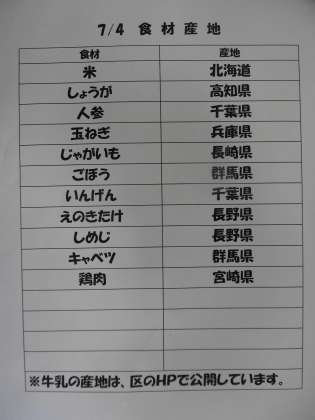 7/4 食材産地
食材 産地
米 北海道
しょうが 高知県
人参 千葉県
玉ねぎ 兵庫県
じゃがいも 長崎県
ごぼう 群馬県
いんげん 千葉県
えのきたけ 長野県
しめじ 長野県
キャベツ 群馬県
鶏肉 宮崎県
※牛乳の産地は、区のHPで公開しています。